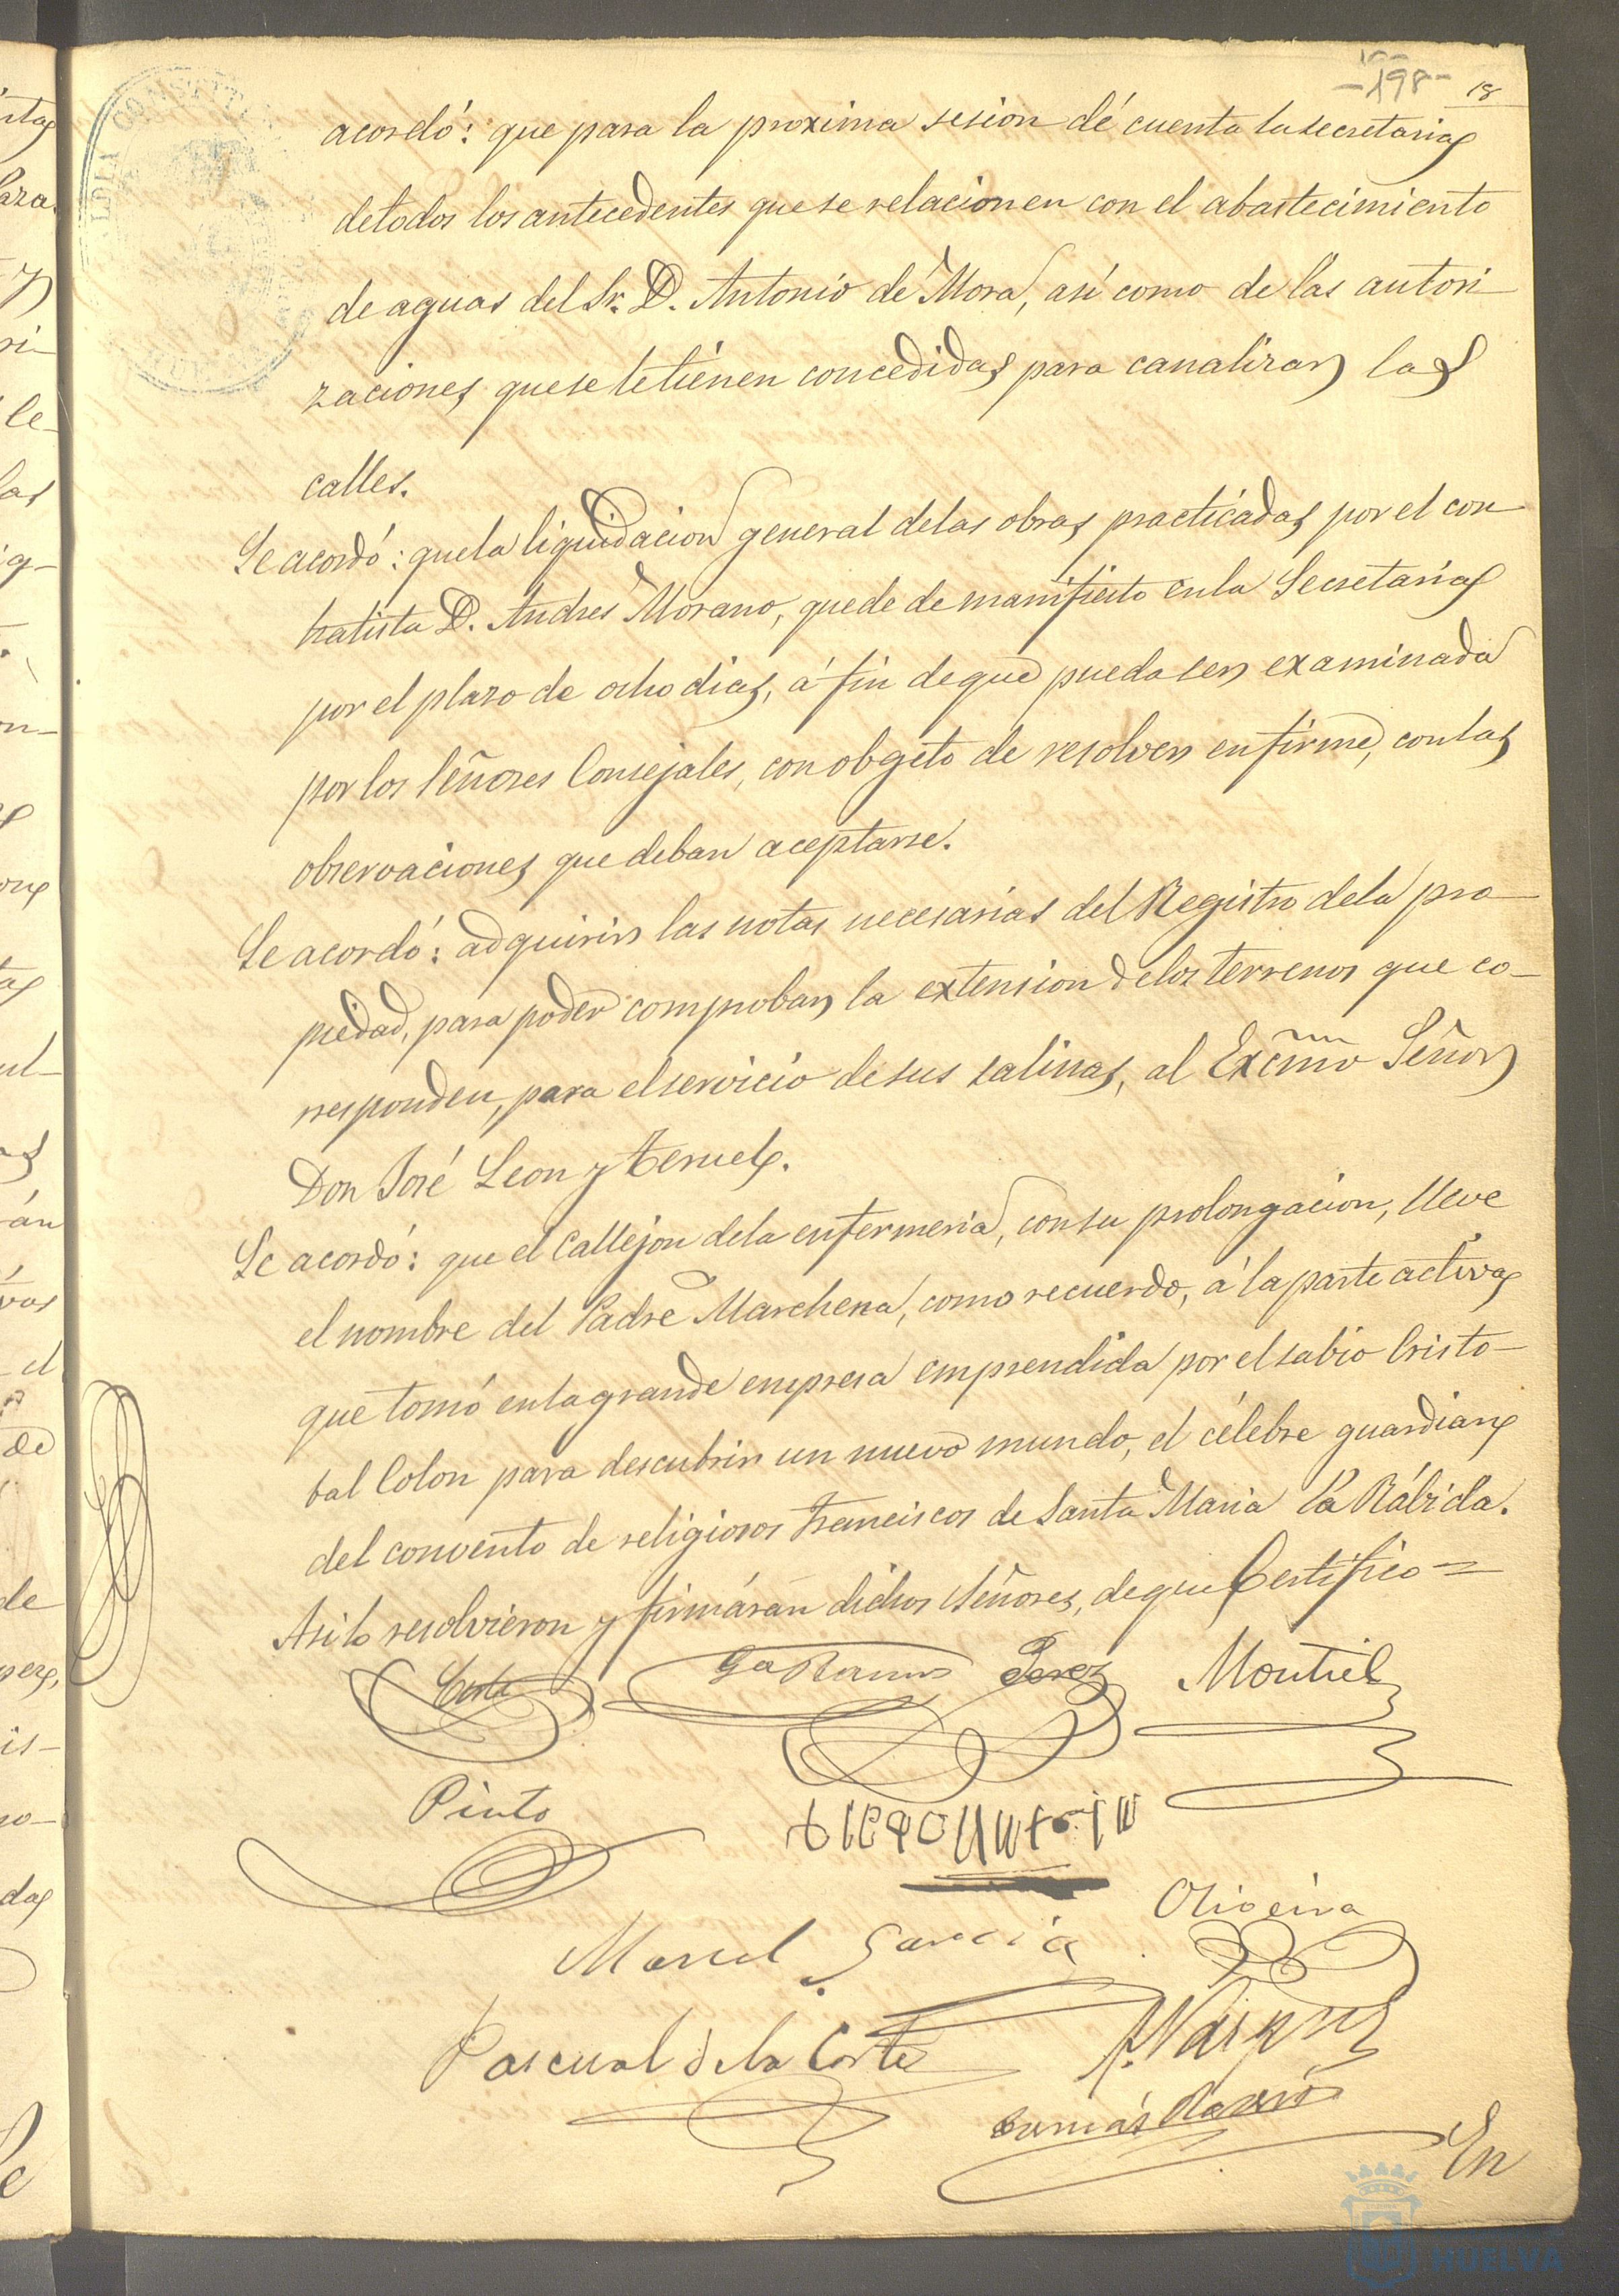 -198-
18
acordó: que para la proxima sesion dé cuenta la secretaria
de todos los antecedentes que se relacionen con el abastecimiento
de aguas del Sr. D. Antonio de Mora, asi como de las autori-
zaciones que se le tienen concedidas para canalizar las
calles.
Se acordó: que la liquidacion general de las obras practicadas por el con-
tratista D. Andres Morano, quede de manifiesto en la Secretaria
por el plazo de ocho dias, á fin de que pueda ser examinada
por los Señores Consejales, con obgeto de resolver en firme, con las
observaciones que deban aceptarse.
Se acordó: adquirir las notas necesarias del Registro de la pro-
piedad, para poder comprobar la extension de los terrenos que co-
rresponden, para el servicio de sus salinas, al Excmo Señor
Don José Leon y Teruel.
Se acordó: que el Callejon de la enfermeria, con su prolongacion, lleve
el nombre del Padre Marchena, como recuerdo, á la parte activa
que tomó en la grande empresa emprendida por el sabio Cristo-
bal Colon para descubrir un nuevo mundo, el célebre guardian
del convento de religiosos Franciscos de Santa Maria la Rábida.
Asi lo resolvieron y firmarán dichos Señores, de que Certifico=
Corte Ga Ramos Perez Montiel
Pinto
Oliveira
Manuel Garcia
Pascual de la Corte
A. Vazquez
Tomás
En
HUELVA